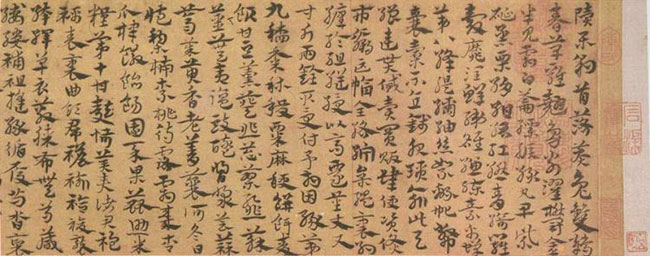 豹首落莫兔雙鶴
春草雞翹鳧翁濯鬱金
半見霜白縹綟綠丸皁紫
烝栗絹紺縉紅繎青綺羅
縠靡潤鮮絡縑練素帛蟬
第八絳緹絓紬絲絮綿
囊橐不直錢服瑣與
繒連貰貸賣買販肆便資貨
市贏匹幅全綌紵枲縕裹約
纏綸組縌綬以高遷量丈尺
寸斤兩銓取受付予相因緣第
九稻黍秫稷粟麻秔餅餌麥
飯甘豆羹葵韭葱蓼薤蘇
薑蕪荑鹽豉醯酢醬芸蒜
薺芥茱萸香老菁蘘荷冬日
臧梨柿柰桃待露霜棗杏
瓜棣饊飴餳園菜果蓏助米
糧第十甘麩恬美奏諸君袍
襦表裏曲領帬襜褕袷複褶
襌衣蔽膝布毋
縷補袒縫緣循履舄沓裒